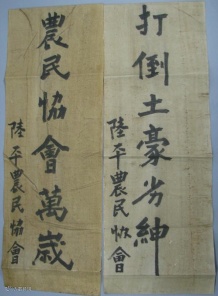 打倒土豪劣紳
陸平農民協會
農民協會萬歲
陸平農民協會